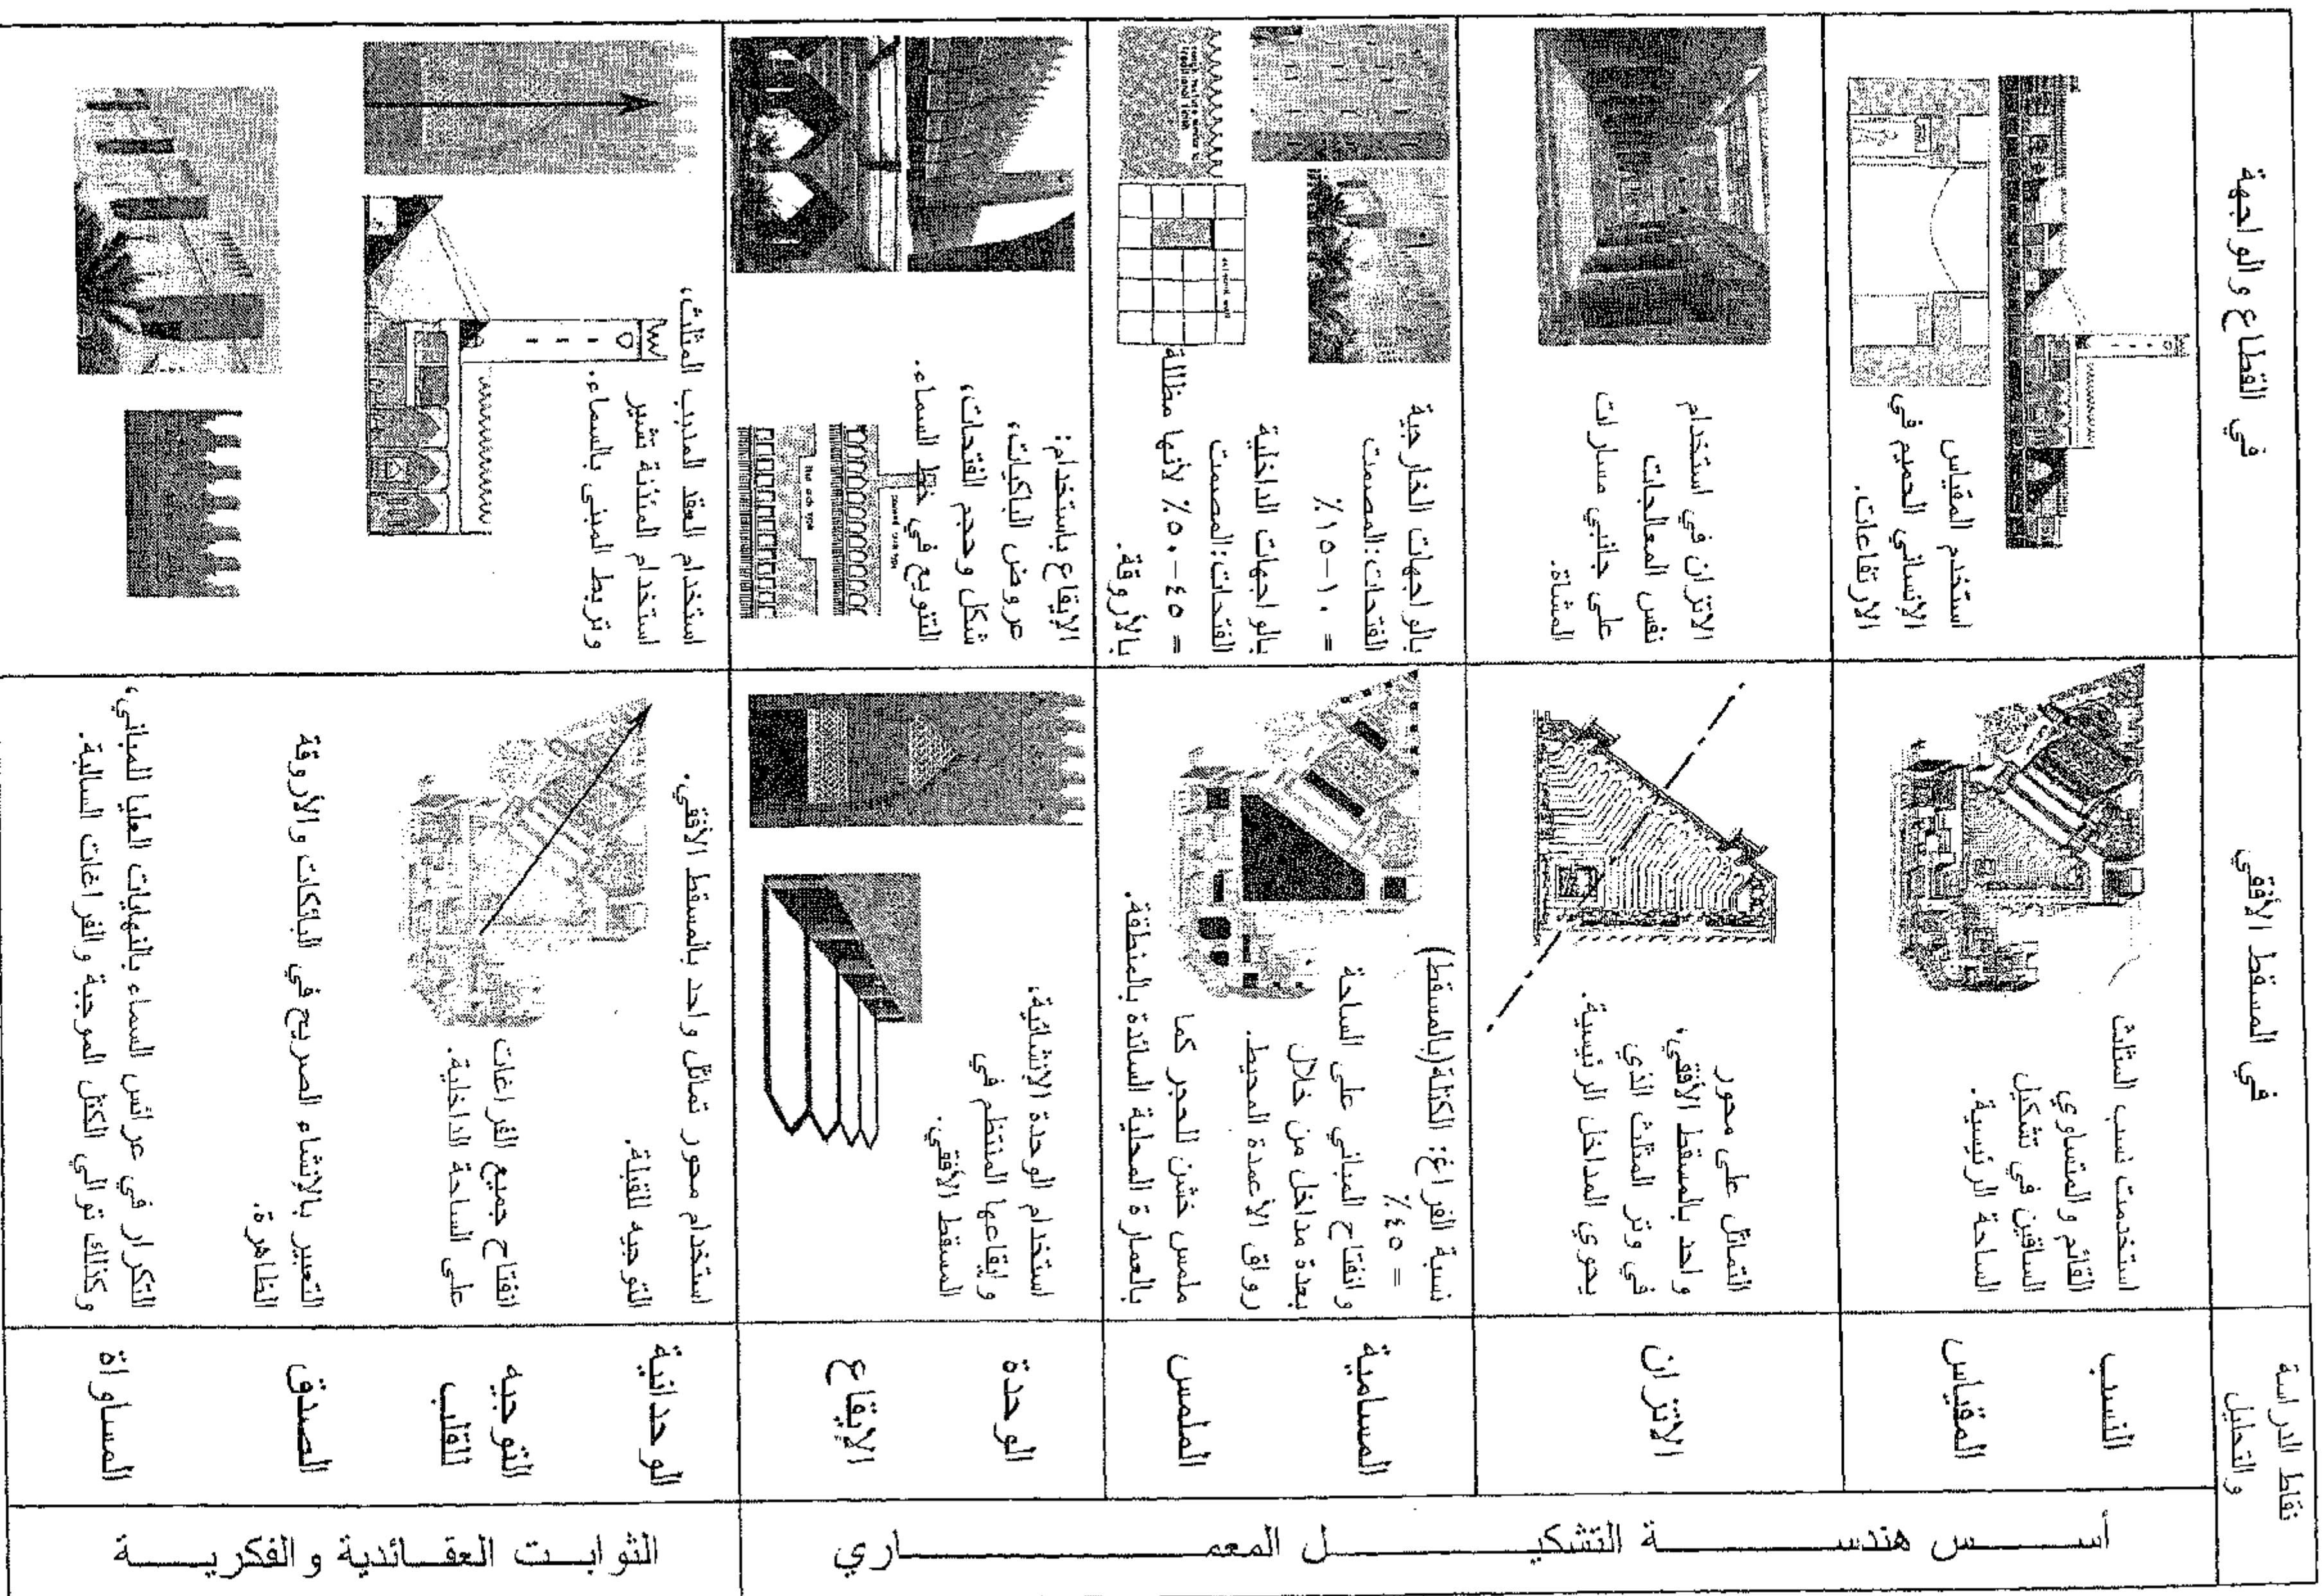 نقاط الدراسة
والتحليل
في المسقط الأفقي
في القطاع والواجهة
أسس هندسة التشكيل المعماري
النسب
المقياس
استخدمت نسب المثلث
القائم والمتساوي
الساقين في تشكيل
الساحة الرئيسية.
استخدم المقياس
الإنساني الحميم في
الارتفاعات.
الاتزان
التماثل على محور
واحد بالمسقط الأفقي،
في وتر المثلث الذي
يحوي المداخل الرئيسية.
الاتزان في استخدام
نفس المعالجات
على جانبي مسارات
المشاة.
المسامية
الملمس
نسبة الفراغ: الكتلة (بالمسقط)
= ٤٥ %
وانفتاح المباني على الساحة
بعدة مداخل من خلال
رواق الأعمدة المحيط.
ملمس خشن للحجر كما
بالعمارة المحلية السائدة بالمنطقة.
بالواجهات الخارجية
الفتحات:المصمت
= ١٠-١٥ %
بالواجهات الداخلية
الفتحات:المصمت
= ٤٥-٥٠ % لأنها مظللة
بالأروقة.
الوحدة
الإيقاع
استخدام الوحدة الإنشائية،
وإيقاعها المنتظم في
المسقط الأفقي.
الإيقاع باستخدام:
عروض الباكيات،
شكل وحجم الفتحات،
التنويع في خط السماء.
الثوابت العقائدية والفكرية
الوحدانية
التوجيه
للقلب
الصدق
المساواة
استخدام محور تماثل واحد بالمسقط الأفقي.
التوجيه للقبلة.
انفتاح جميع الفراغات
على الساحة الداخلية.
التعبير بالإنشاء الصريح في البائكات والأروقة
الظاهرة.
التكرار في عرائس السماء بالنهايات العليا للمباني،
وكذلك توالي الكتل الموجبة والفراغات السالبة.
استخدام العقد المدبب المثلث،
استخدام المئذنة تشير
وتربط المبنى بالسماء.